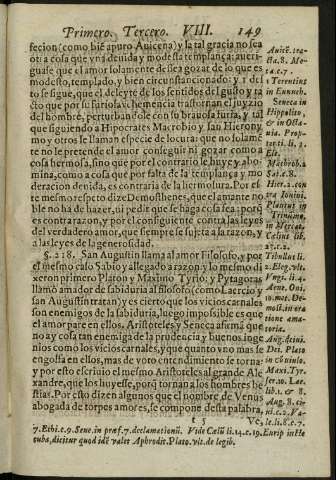 Primero. Tercero. VIII. 149
fecion (como biē apuro Auicena) y la tal gracia no sea
otra cosa que vna deuida y modesta templança: aueri-
guase que el amor solamente dessea gozar de lo que es
modesto, templado, y bien circunstancionado: y i del
to se sigue, que el deleyte de los sentidos del gusto y ta
cto que por su furiosa vehemencia trastornan el juyzio
del hombre, perturbandole con su brauosa furia, y tal
que siguiendo a Hipocrates Macrobio y san Hieronymo
y otros le llaman especie de locura: que no solamē
te no le pretende el amor conseguir ni gozar como a
cosa hermosa, sino que por el contrario le huye y abo-
mina, como a cosa que por falta de la templança y mo
deracion deuida, es contraria de la hermosura. Por es
te mesmo respeto dize Demosthenes, que el amante no
ble no ha de hazer, ni pedir que se haga cosa fea: porq̄
es contra razon, y por el consiguiente contra las leyes
del verdadero amor, que siempre se sujeta a la razon, y
a las leyes de la generosidad.
§. 218. San Augustin llama al amor Filosofo, y por
el mesmo caso Sabio y allegado a razon: y lo mesmo di
xeron primero Platon y Maximo Tyrio, y Pytagoras
llamó amador de sabiduria al filosofo (como Laercio y
san Augustin tratan) y es cierto que los vicios carnales
son enemigos de la sabiduria, luego impossible es que
el amor pare en ellos. Aristoteles y Seneca afirma que
no ay cosa tan enemiga de la prudencia y buenos inge
nios como los vicios carnales, y que quanto vno mas se
engolfa en ellos, mas de voto entendimiento se torna:
y por esto escriuio el mesmo Aristoteles al grande Ale
xandre, que los huyesse, porq̄ tornan a los hombres be
stias. Por esto dizen algunos que el nombre de Venus
abogada de torpes amores, se compone desta palabra,
t 5 Ve,
Auicē. tra-
cta. 8. Me-
ta. c. 7.
1 Terentius
in Eunuch.
Seneca in
Hippolito,
& in Octa-
uia. Prop-
Macrob. 2
Sat. c. 8.
Hier. 2. con
tra Iouini.
Plautus in
Trinūmo,
in Mercat.
Cælius lib.
27. c. 2.
Tibullus li.
2. Eleg. vlt.
Virgi. li. 4.
Aene. Oui.
10. met. De-
most. in ora
tione ama-
toria.
Aug. de ciui.
Dei. Plato
in cōuiuio.
Maxi. Tyr.
ser. 10. Lae.
lib. 1. & 8.
Aug. 8. ci-
ui. c. 2. Va-
le. li. 8. c. 7.
7. Ethi. c. 9. Sene. in præf. 7. declamationū. Vide Cælū li. 14. c. 19. Eurip in He
cuba, dicitur quod idē valet Aphrodit. Plato. vlt. de legib.